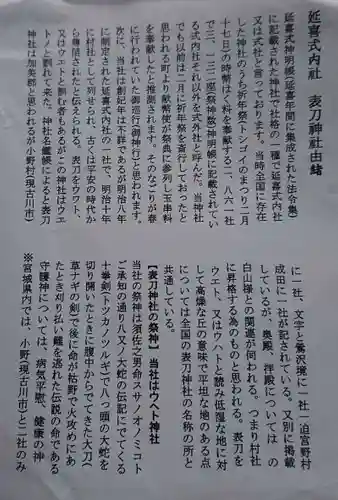 延喜式内社 表刀神社由緒
延喜式神明帳(延喜年間に集成された法令集)
に記載された神社で社格の一種で延喜式内社
又は式社と言っております。当時全国に存在
した神社のうち祈年祭(トシゴイのまつり二月
十七日)の時幣はく料を奉献する二、八六一社
で三、一三二座(祭神数)神明帳に記載されてい
る式内社それ以外を式外社と呼んだ。当神社
でも以前は二月に祈年祭を斎行しておったと
思われる町より献幣使が祭典に参列し玉串料
を奉献したと推測されます。そのなごりが春
に行われていた御巡行(御神行)と思われます。
次に、当社は創妃年は不詳であるが明治八年
に制定された延喜式内社の一社で、明治十年
に村社として列せられ、古くは平安の時代か
ら尊崇されたと伝えられる。表刀をウワト、
又はウエトと訓む者もあるがこの神社はウエ
トノと訓れて来た。神社名鑑帳によると表刀
神社は加美郡と思われるが小野村(現古川市)
に一社、文字と鶯沢境に一社一迫宮野村
成田に一社が記されている。又別に掲載
しているが、奥殿、拝殿については の
白山様との関連が伺われる。つまり村社
に昇格する為のものと思われる。表刀を
ウエト、又はウハトと読み低湿な地に対
して高燥な丘の意味で平坦な地のある点
については全国の表刀神社の名称の所と
共通している。
【表刀神社の祭神】当社はウヘト神社
当社の祭神は須佐之男命スサノオノミコト
ご承知の通り八又ノ大蛇の伝記にでてくる
十拳剣(トツカノツルギ)で八つ頭の大蛇を
切り開いたときに腹中からでてきた大刀(
草ナギの剣)で後に命が枯野で火攻めにあ
たとき刈り払い難を逃れた伝説の命である
守護神については、病気平慰、健康の神
※宮城県内では、小野(現古川市)と二社のみ